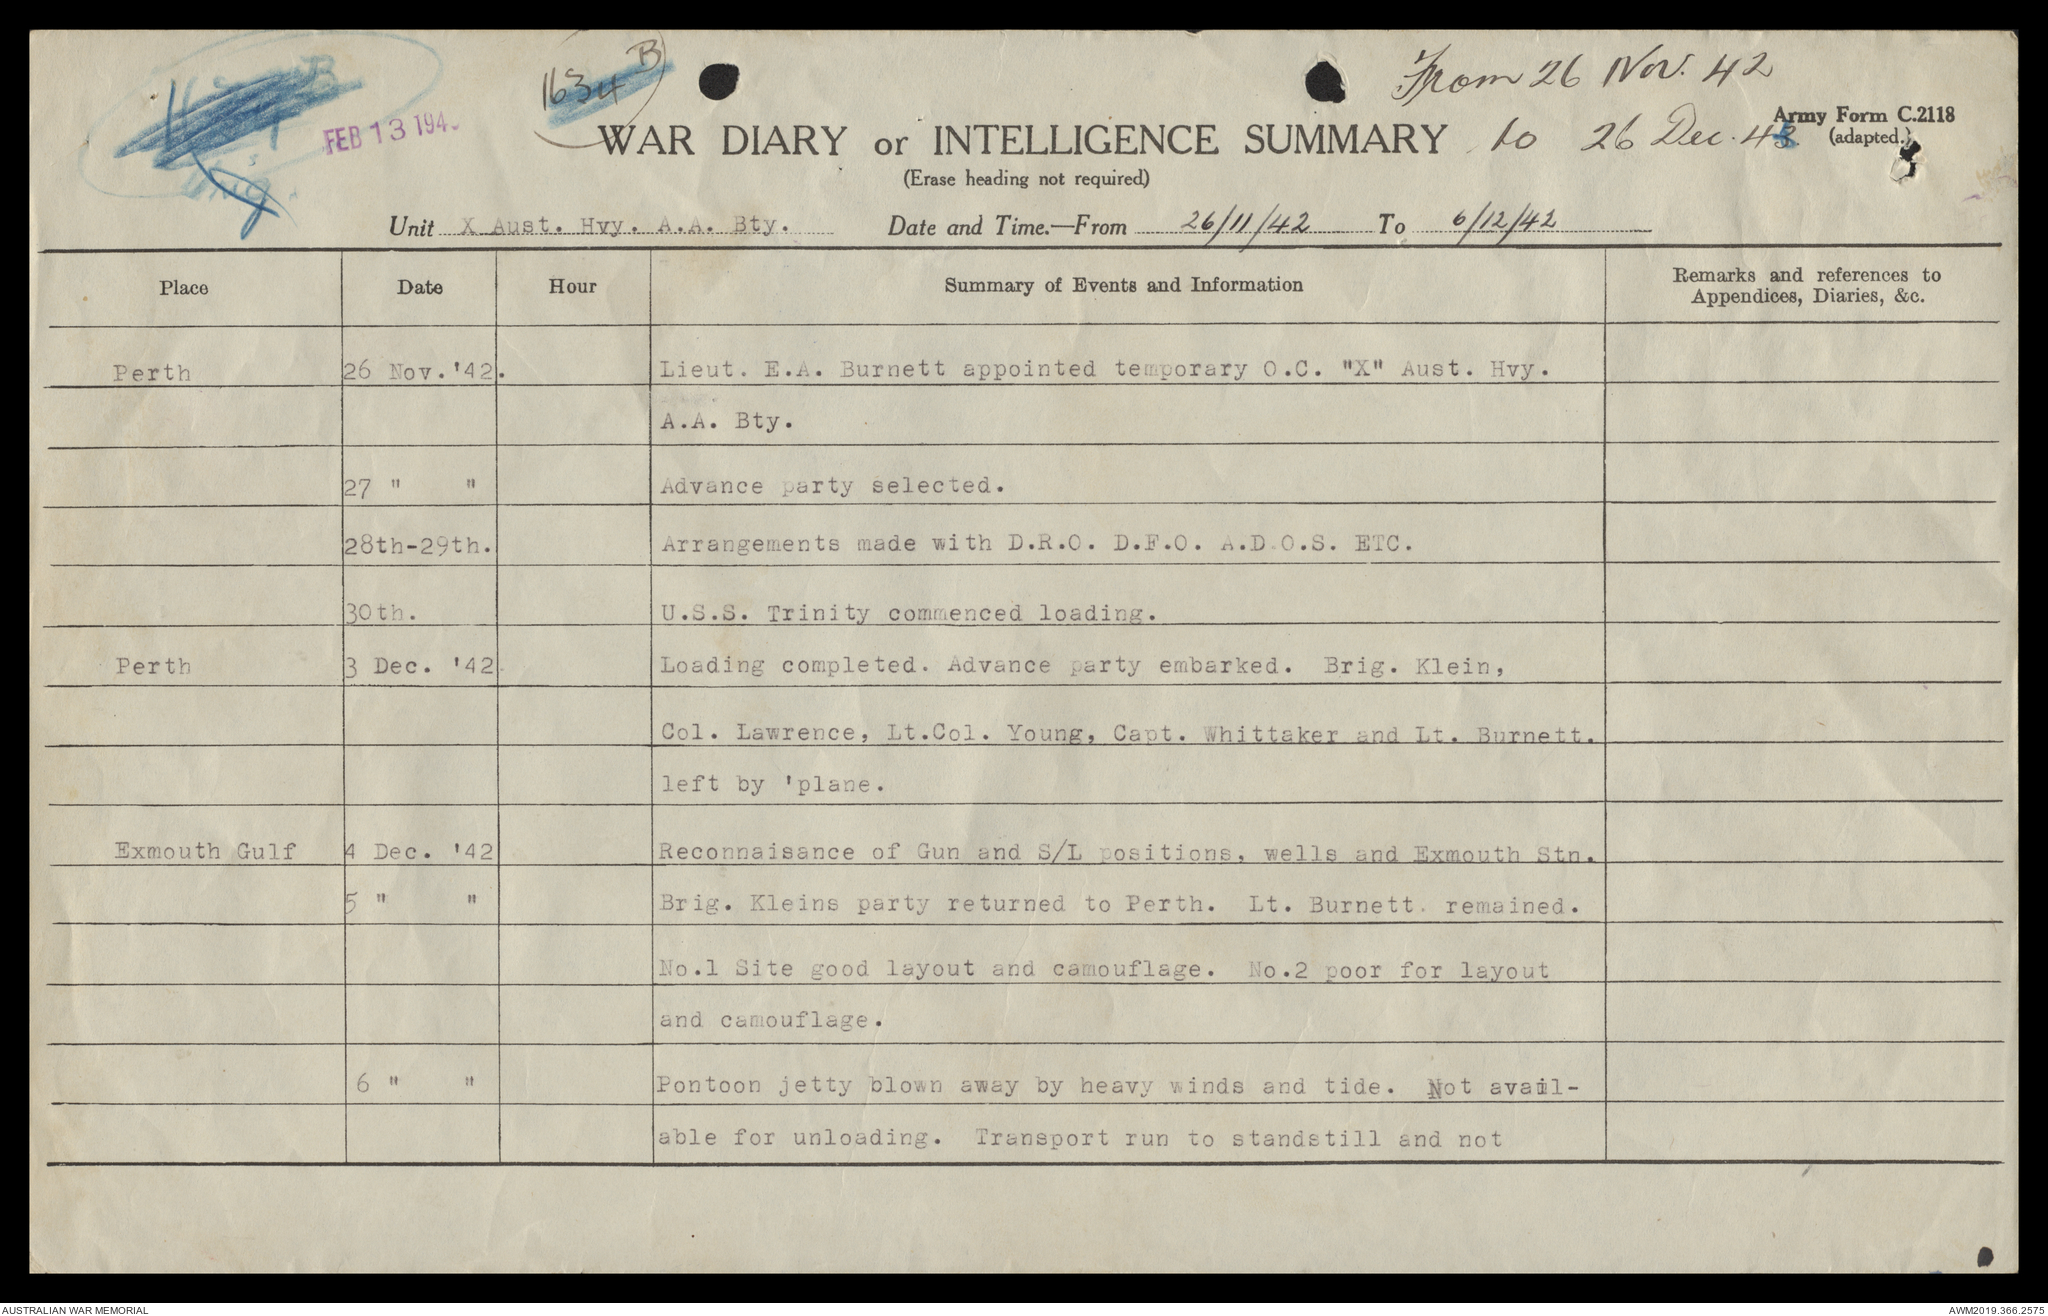 1634 B
FEB 13 194
From 26 Nov. 42
to 26 Dec. 42
Army Form C.2118
(adapted.)
WAR DIARY or INTELLIGENCE SUMMARY
(Erase heading not required)
Unit X Aust. Hvy. A.A. Bty. Date and Time.—From 26/11/42 To 6/12/42
Place Date Hour Summary of Events and Information Remarks and references to
Appendices, Diaries, &c.
Perth 26 Nov.'42. Lieut. E.A. Burnett appointed temporary O.C. "X" Aust. Hvy.
A.A. Bty.
27 " " Advance party selected.
28th-29th. Arrangements made with D.R.O. D.F.O. A.D.O.S. ETC.
30th. U.S.S. Trinity commenced loading.
Perth 3 Dec. '42. Loading completed. Advance party embarked. Brig. Klein,
Col. Lawrence, Lt.Col. Young, Capt. Whittaker and Lt. Burnett.
left by 'plane.
Exmouth Gulf 4 Dec. '42 Reconnaisance of Gun and S/L positions, wells and Exmouth Stn.
5 " " Brig. Kleins party returned to Perth. Lt. Burnett. remained.
No.1 Site good layout and camouflage. No.2 poor for layout
and camouflage.
6 " " Pontoon jetty blown away by heavy winds and tide. Not avail-
able for unloading. Transport run to standstill and not
AUSTRALIAN WAR MEMORIAL AWM2019.366.2575